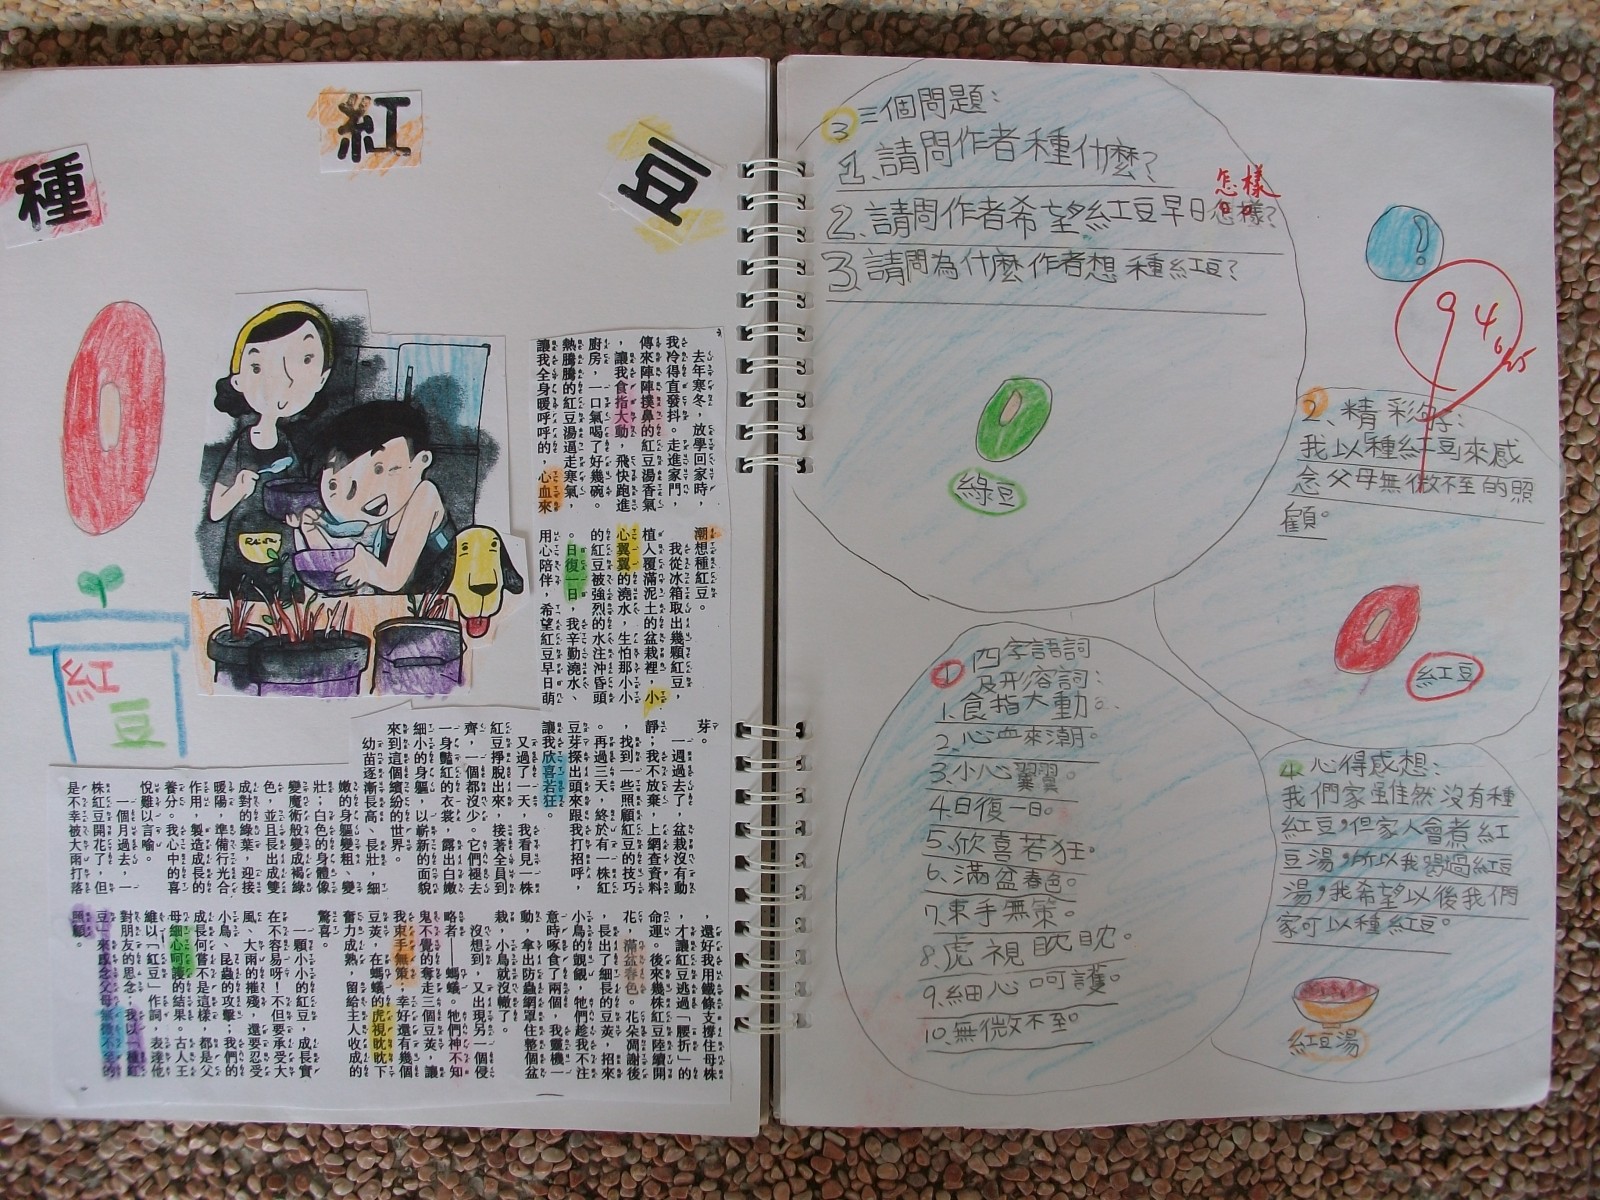 種紅豆
去年寒冬，放學回家時，
我冷得直發抖。走進家門，
傳來陣陣撲鼻的紅豆湯香氣
，讓我食指大動，飛快跑進
廚房，一口氣喝了好幾碗。
熱騰騰的紅豆湯逼走寒氣，
讓我全身暖呼呼的，心血來
潮想種紅豆。
我從冰箱取出幾顆紅豆，
植入覆滿泥土的盆栽裡，小
心翼翼的澆水，生怕那小小
的紅豆被強烈的水注沖昏頭
。日復一日，我辛勤澆水、
用心陪伴，希望紅豆早日萌
芽。
一週過去了，盆栽沒有動
靜；我不放棄，上網查資料
，找到一些照顧紅豆的技巧
。再過三天，終於有一株紅
豆芽探出頭來跟我打招呼，
讓我欣喜若狂。
又過了一天，我看見一株
紅豆掙脫出來，接著全員到
齊，一個都沒少。它們褪去
一身豔紅的衣裳，露出白嫩
細小的身軀，以嶄新的面貌
來到這個繽紛的世界。
幼苗逐漸長高、長壯，細
嫩的身軀變粗、變
壯；白色的身體像
變魔術般變成褐綠
色，並且長出成雙
成對的綠葉，迎接
暖陽，準備行光合
作用，製造成長的
養分。我心中的喜
悅難以言喻。
一個月過去，一
株紅豆開花了，但
是不幸被大雨打落
，還好我用鐵條支撐住母株
，才讓紅豆逃過「腰折」的
命運。後來幾株紅豆陸續開
花，滿盆春色。花朵凋謝後
，長出了細長的豆莢，招來
小鳥的覬覦，牠們趁我不注
意時啄食了兩個，我靈機一
動，拿出防蟲網罩住整個盆
栽，小鳥就沒轍了。
沒想到，又出現另一個侵
略者——螞蟻。牠們神不知
鬼不覺的奪走三個豆莢，讓
我束手無策；幸好還有幾個
豆莢，在螞蟻的虎視眈眈下
奮力成熟，留給主人收成的
驚喜。
一顆小小的紅豆，成長實
在不容易呀！不但要承受大
風、大雨的摧殘，還要忍受
小鳥、昆蟲的攻擊；我們的
成長何嘗不是這樣，都是父
母細心呵護的結果。古人王
維以「紅豆」作詞，表達他
對朋友的思念；我以「種紅
豆」來感念父母無微不至的
照顧。
紅
豆
3 三個問題：
1、請問作者種什麼？
2、請問作者希望紅豆早日怎樣？
怎樣
3、請問為什麼作者想種紅豆？
綠豆
94.5
2、精彩句子：
我以種紅豆來感
念父母無微不至的照
顧。
紅豆
1 四字語詞
及形容詞：
1.食指大動。
2.心血來潮。
3.小心翼翼。
4.日復一日。
5.欣喜若狂。
6.滿盆春色。
7.束手無策。
8.虎視眈眈。
9.細心呵護。
10.無微不至。
4、心得感想：
我們家雖然沒有種
紅豆，但家人會煮紅
豆湯，所以我喝過紅豆
湯，我希望以後我們
家可以種紅豆。
紅豆湯